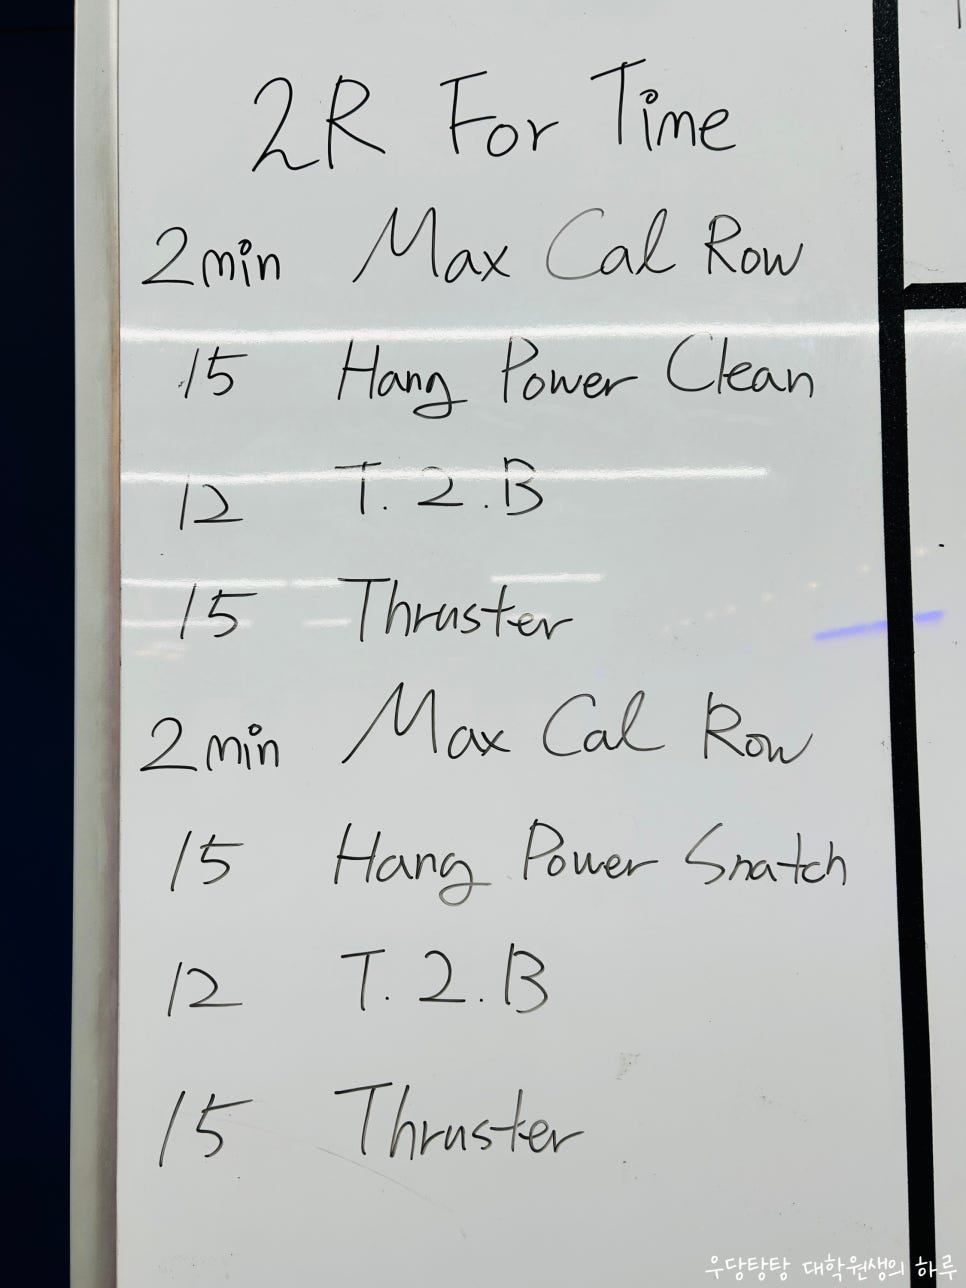 2R For Time
2min Max Cal Row
15 Hang Power Clean
12 T.2.B
15 Thruster
2min Max Cal Row
15 Hang Power Snatch
12 T.2.B
15 Thruster
우당탕탕 대학원생의 하루